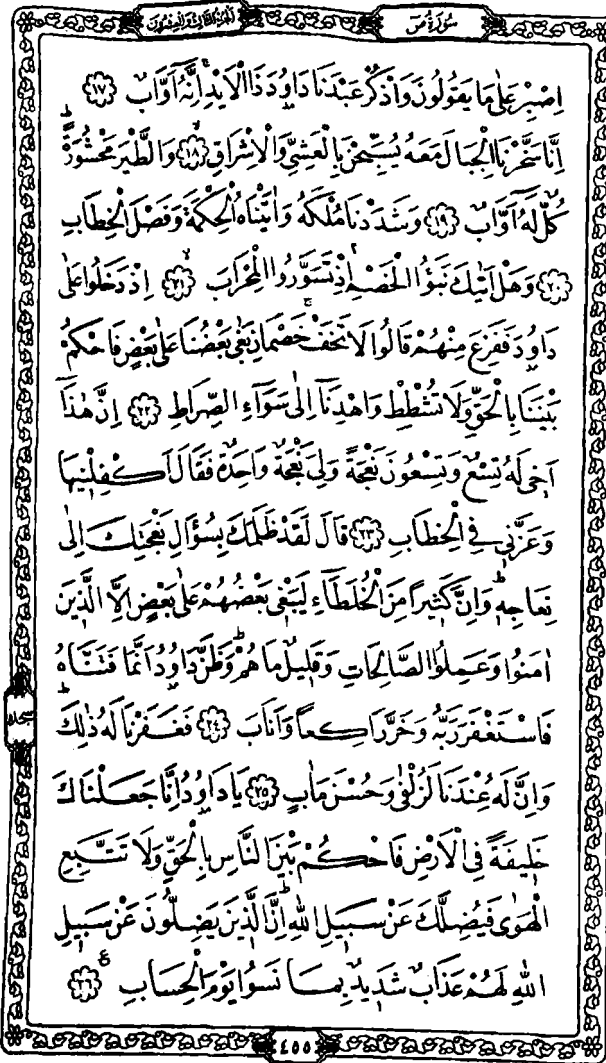 سُورَةُ صٓ
اَلْجُزْءُ الثَّالِثُ وَالْعِشْرُونَ
اِصْبِرْ عَلٰى مَا يَقُولُونَ وَاذْكُرْ عَبْدَنَا دَاوُ۫دَ ذَا الْاَيْدِۚ اِنَّهُٓ اَوَّابٌ ﴿١٧﴾
اِنَّا سَخَّرْنَا الْجِبَالَ مَعَهُ يُسَبِّحْنَ بِالْعَشِيِّ وَالْاِشْرَاقِۙ ﴿١٨﴾ وَالطَّيْرَ مَحْشُورَةًۜ
كُلٌّ لَهُٓ اَوَّابٌ ﴿١٩﴾ وَشَدَدْنَا مُلْكَهُ وَاٰتَيْنَاهُ الْحِكْمَةَ وَفَصْلَ الْخِطَابِ
﴿٢٠﴾ وَهَلْ اَتٰيكَ نَبَؤُا الْخَصْمِۢ اِذْ تَسَوَّرُوا الْمِحْرَابَۙ ﴿٢١﴾ اِذْ دَخَلُوا عَلٰى
دَاوُ۫دَ فَفَزِعَ مِنْهُمْ قَالُوا لَا تَخَفْۚ خَصْمَانِ بَغٰى بَعْضُنَا عَلٰى بَعْضٍ فَاحْكُمْ
بَيْنَنَا بِالْحَقِّ وَلَا تُشْطِطْ وَاهْدِنَٓا اِلٰى سَوَٓاءِ الصِّرَاطِ ﴿٢٢﴾ اِنَّ هٰذَٓا
اَخ۪ي لَهُ تِسْعٌ وَتِسْعُونَ نَعْجَةً وَلِيَ نَعْجَةٌ وَاحِدَةٌ فَقَالَ اَكْفِلْن۪يهَا
وَعَزَّن۪ي فِي الْخِطَابِ ﴿٢٣﴾ قَالَ لَقَدْ ظَلَمَكَ بِسُؤَالِ نَعْجَتِكَ اِلٰى
نِعَاجِه۪ۜ وَاِنَّ كَث۪يرًا مِنَ الْخُلَطَٓاءِ لَيَبْغ۪ي بَعْضُهُمْ عَلٰى بَعْضٍ اِلَّا الَّذ۪ينَ
اٰمَنُوا وَعَمِلُوا الصَّالِحَاتِ وَقَل۪يلٌ مَا هُمْۜ وَظَنَّ دَاوُ۫دُ اَنَّمَا فَتَنَّاهُ
فَاسْتَغْفَرَ رَبَّهُ وَخَرَّ رَاكِعًا وَاَنَابَ ﴿٢٤﴾ فَغَفَرْنَا لَهُ ذٰلِكَۜ
وَاِنَّ لَهُ عِنْدَنَا لَزُلْفٰى وَحُسْنَ مَاٰبٍ ﴿٢٥﴾ يَا دَاوُ۫دُ اِنَّا جَعَلْنَاكَ
خَل۪يفَةً فِي الْاَرْضِ فَاحْكُمْ بَيْنَ النَّاسِ بِالْحَقِّ وَلَا تَتَّبِعِ
الْهَوٰى فَيُضِلَّكَ عَنْ سَب۪يلِ اللّٰهِۜ اِنَّ الَّذ۪ينَ يَضِلُّونَ عَنْ سَب۪يلِ
اللّٰهِ لَهُمْ عَذَابٌ شَد۪يدٌ بِمَا نَسُوا يَوْمَ الْحِسَابِ۟ ﴿٢٦﴾
٤٥٥